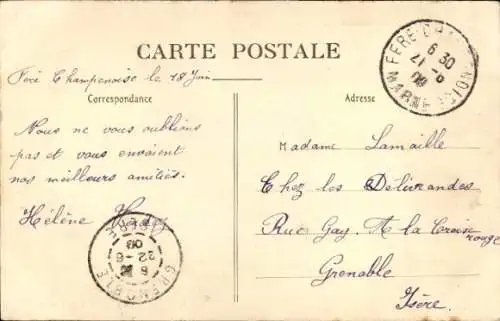 CARTE POSTALE
Fère Champenoise le 18 Juin
Correspondance
Adresse
Nous ne vous oublions
pas et vous envoient
nos meilleurs amitiés.
Hélène
Madame Lamaille
Chez les Délivrandes
Rue Gay. A la Croise rouge
Grenable
Isère.
FERE-CHAMPENOISE
6 30
21 -6
09
MARNE
GRENOBLE
8
22-6
09
ISERE